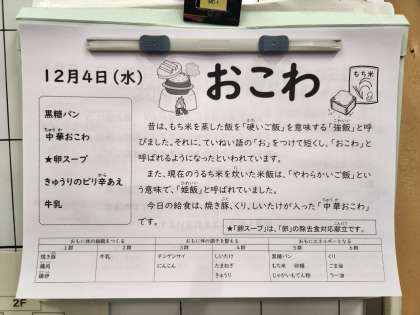 12月4日(水)
おこわ
もち米
黒糖パン
ちゅうか
中華おこわ
★卵スープ
きゅうりのピリ辛あえ
牛乳
昔は、もち米を蒸した飯を「硬いご飯」を意味する「強飯」と呼
びました。それに、ていねい語の「お」をつけて短くし、「おこわ」と
呼ばれるようになったといわれています。
また、現在のうるち米を炊いた米飯は、「やわらかいご飯」とい
う意味で、「姫飯」と呼ばれていました。
今日の給食は、焼き豚、くり、しいたけが入った「中華おこわ」
です。
★「卵スープ」は、「卵」の除去食対応献立です。
おもに体の組織をつくる おもに体の調子を整える おもにエネルギーとなる
1群 2群 3群 4群 5群 6群
焼き豚 牛乳 チンゲンサイ しいたけ 黒糖パン くり
鶏肉 にんじん たまねぎ もち米 砂糖 ごま油
鶏卵 きゅうり じゃがいもでん粉 ラー油
2F